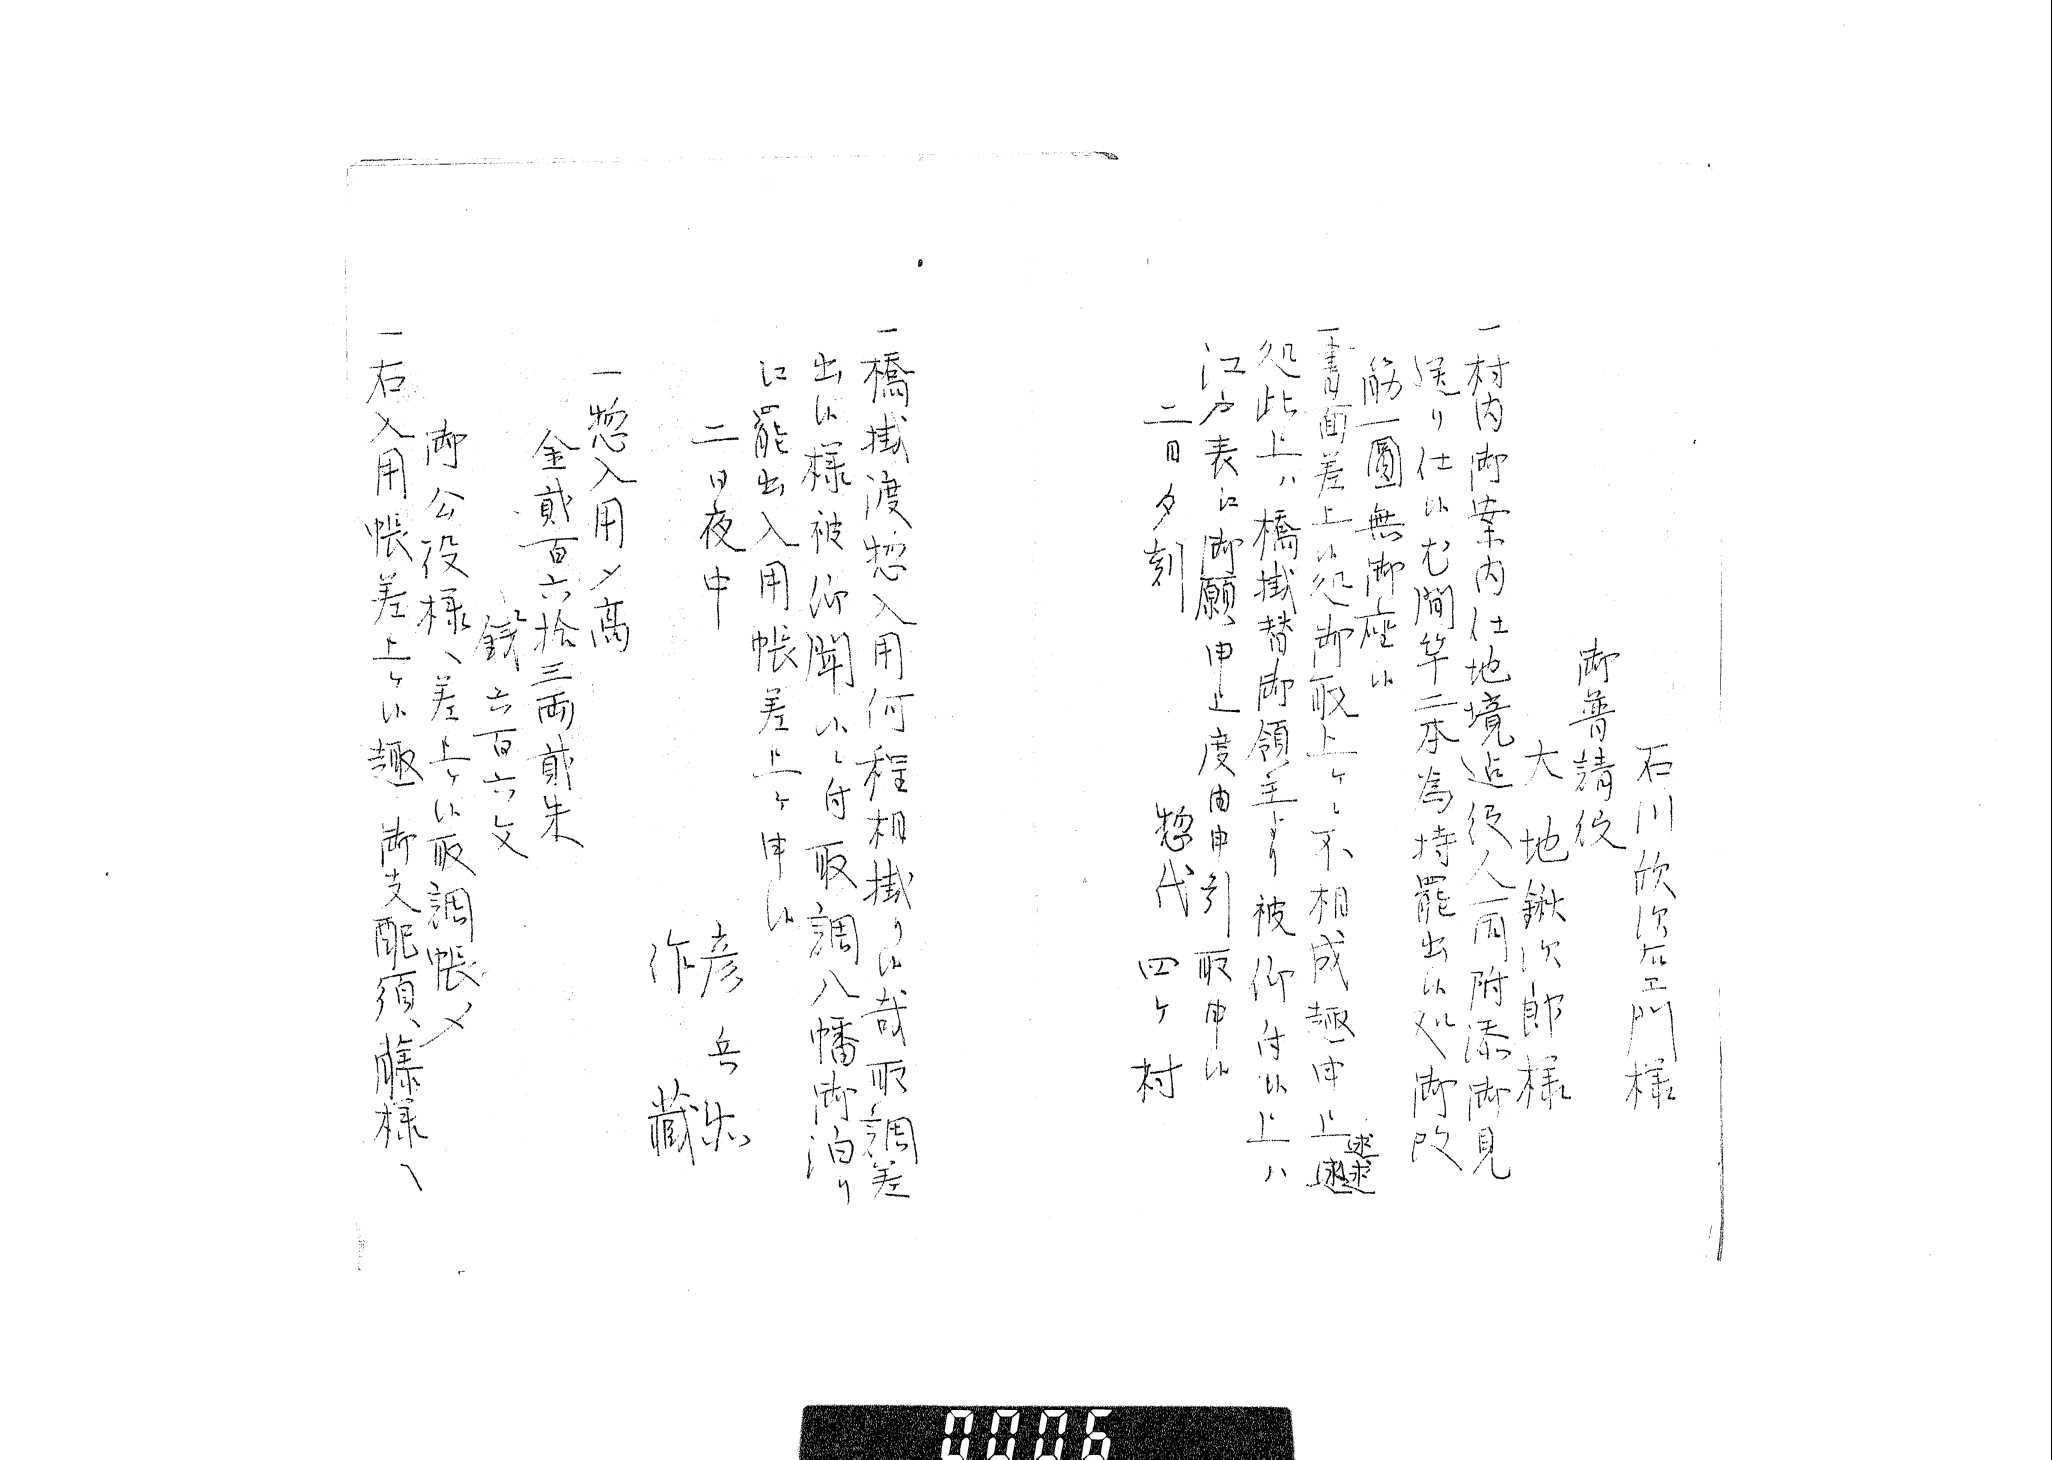 石川欣次左エ門様
御普請役
大地鍬次郎様
一村内御案内仕地境迄役人一同附添御見
送り仕候尤間竿二本為持罷出候処御改
筋一圓無御座候
一書面差上候処御取上ケ不相成趣申上
処此上ハ橋掛替御領主より被仰付候上ハ
江戸表江御願申上度由申引取申候
二日夕刻 惣代 四ケ村
一橋掛渡惣入用何程相掛り候哉取調差
出候様被仰聞候ニ付取調八幡御泊り
江罷出入用帳差上ケ申候
二日夜中 彦兵衛
作藏
一惣入用〆高
金貮百六拾三両貮朱
銭六百六文
御公役様へ差上ケ候取調帳〆
一右入用帳差上ケ候趣御支配須藤様へ
0006